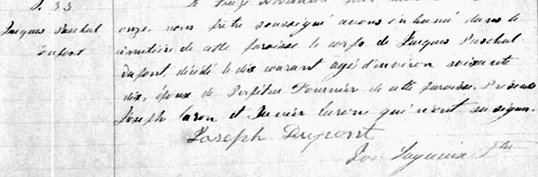 S. 33
Jacques Paschal
Dupont
Le treize
onze nous prêtre soussigné avons inhumé dans le
cimetière de cette paroisse le corps de Jacques Paschal
Dupont, décédé le dix courant agé d'environ soixante
dix, époux de Perpétue Fournier de cette paroisse. Présents
Joseph Caron et Caron qui n'ont su signer.
Joseph Dupont
Jos Ptre